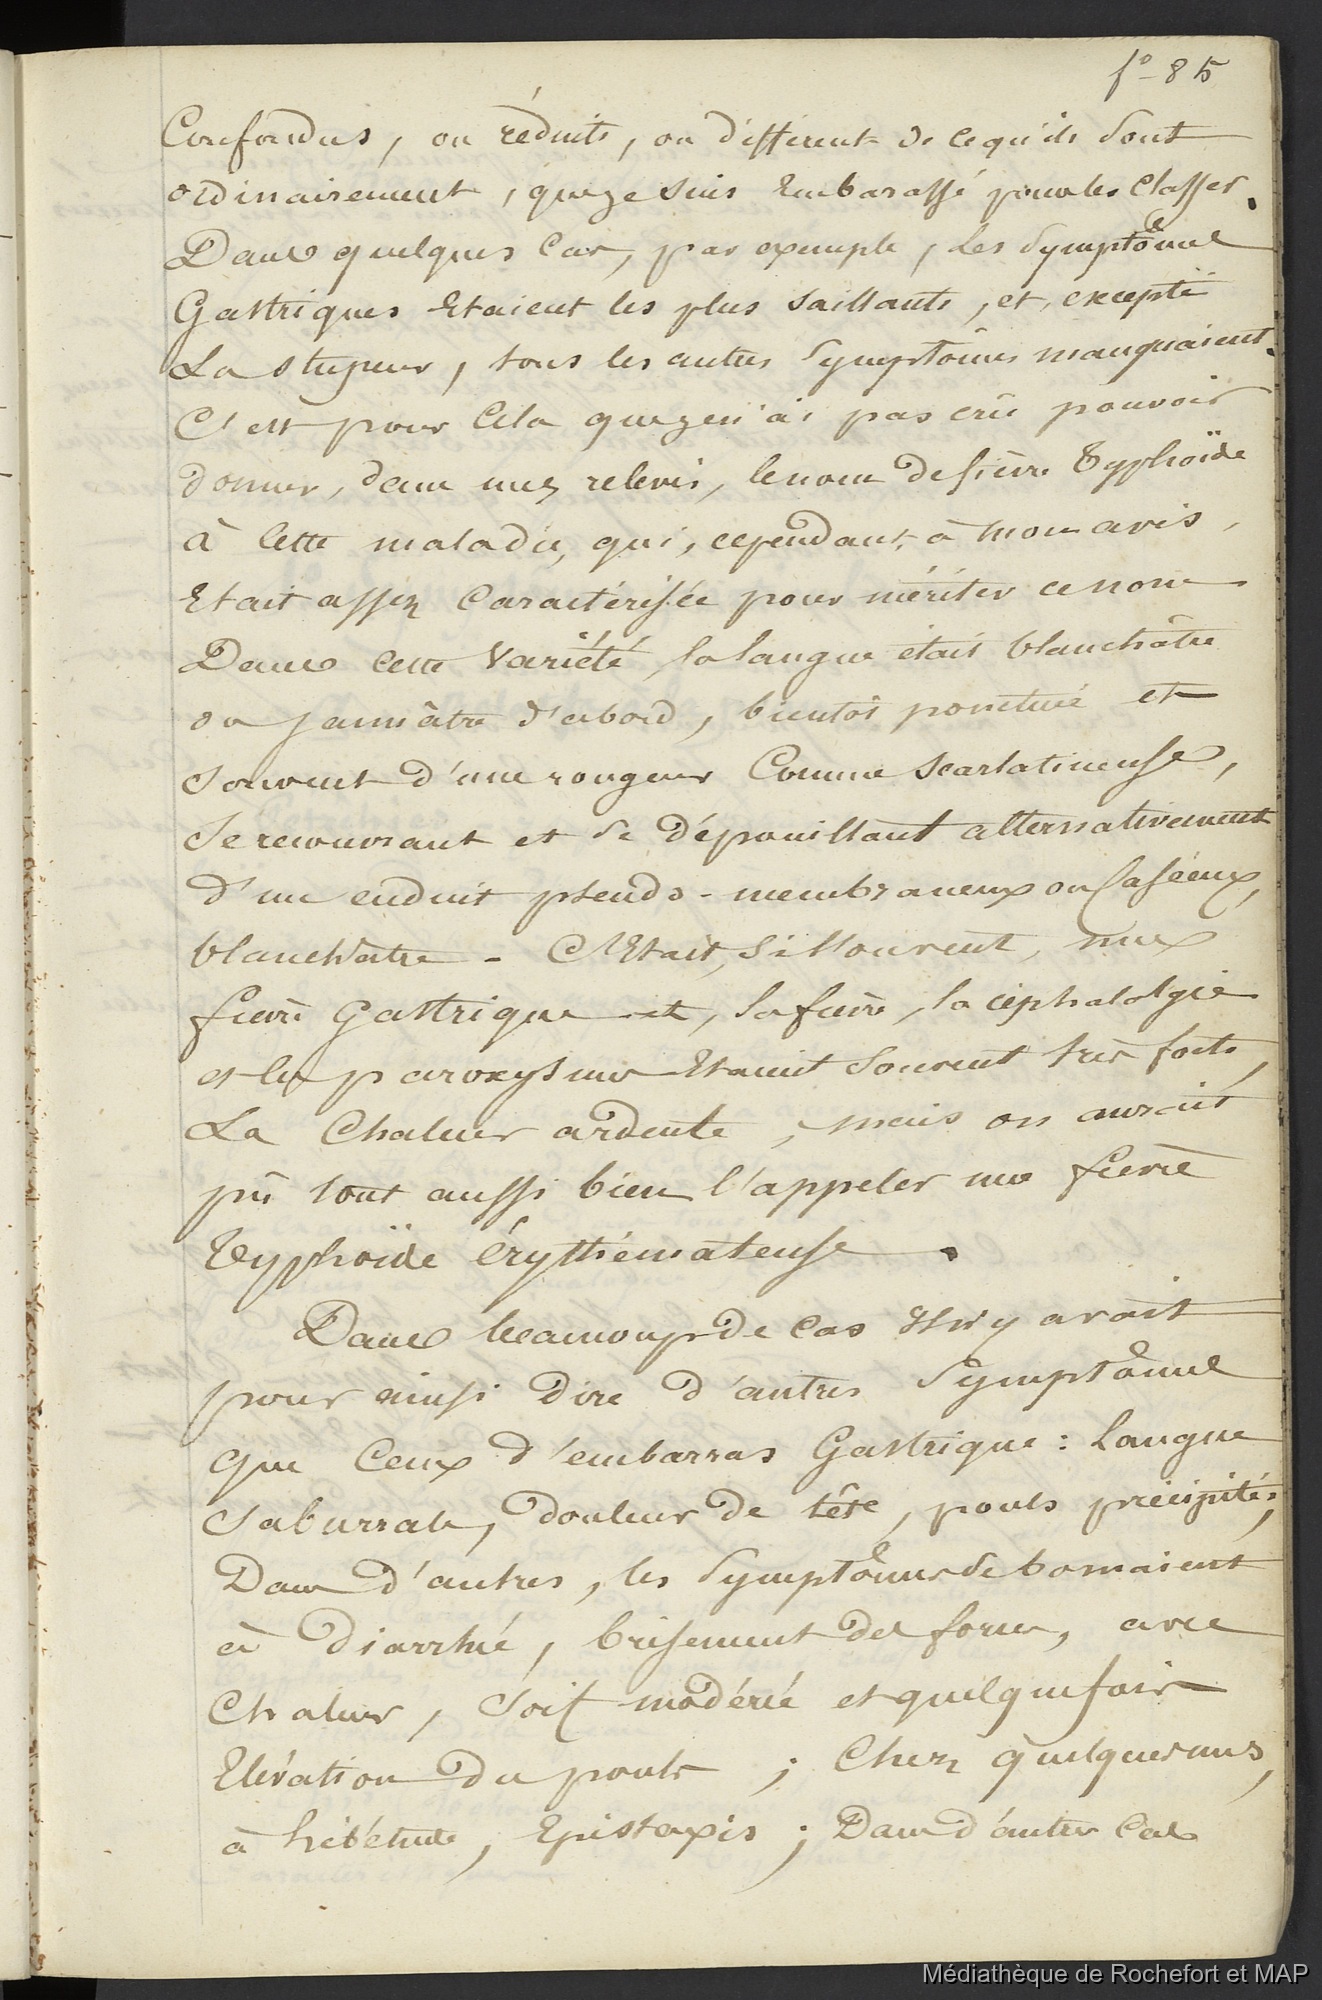 fº 85
Confondus, ou réduits, ou différent de ce qu'ils sont
ordinairement, que je suis Embarassé pour les Classer.
Dans quelques Cas, par exemple, Les Symptômes
Gastriques Etaient les plus Saillants, et, excepté
La stupeur, tous les autres Symptômes manquaient.
C'est pour Cela que je n'ai pas crû pouvoir
donner, dans mes relevés, le nom de fièvre Typhoïde
à Cette maladie, qui, cependant, à mon avis,
Etait assez Caractérisée pour mériter ce nom
Dans Cette Variété, la langue était blanchâtre
ou jaunâtre d'abord, bientôt ponctuée et
Souvent d'une rougeur Comme Scarlatineuse,
Se recouvrant et se dépouillant alternativement
d'un enduit pseudo-membraneux ou Caséeux,
blanchâtre - C'Etait, si l'on veut, une
fièvre Gastrique et, la fièvre, la céphalalgie
et les paroxysmes Etaient Souvent très forts,
La Chaleur ardente, mais on aurait
pû tout aussi bien l'appeler une fièvre
Typhoïde érythémateuse.
Dans beaucoup de Cas Il n'y avait
pour ainsi dire d'autres Symptômes
que Ceux d'embarras Gastrique : Langue
Saburrale, douleur de tête, pouls précipité;
Dans d'autres, les Symptômes se bornaient
à diarrhée, brisement des forces, avec
Chaleur, Soif modérée et quelquefois
Elévation du pouls ; Chez quelques uns,
à hébétude, Epistaxis ; Dans d'autres Cas
Médiathèque de Rochefort et MAP